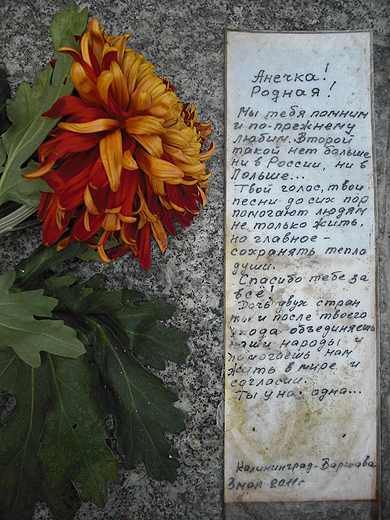 Анечка!
Родная!
Мы тебя помним
и по-прежнему
любим. Второй
такой нет больше
ни в России, ни в
Польше...
Твой голос, твои
песни до сих пор
помогают людям
не только жить,
но главное -
сохранять тепло
души.
Спасибо тебе за
всё!
Дочь двух стран
ты и после твоего
ухода объединяешь
наши народы и
помогаешь нам
жить в мире и
согласии.
Ты у нас одна...
Калининград-Варшава
3 мая 2011г